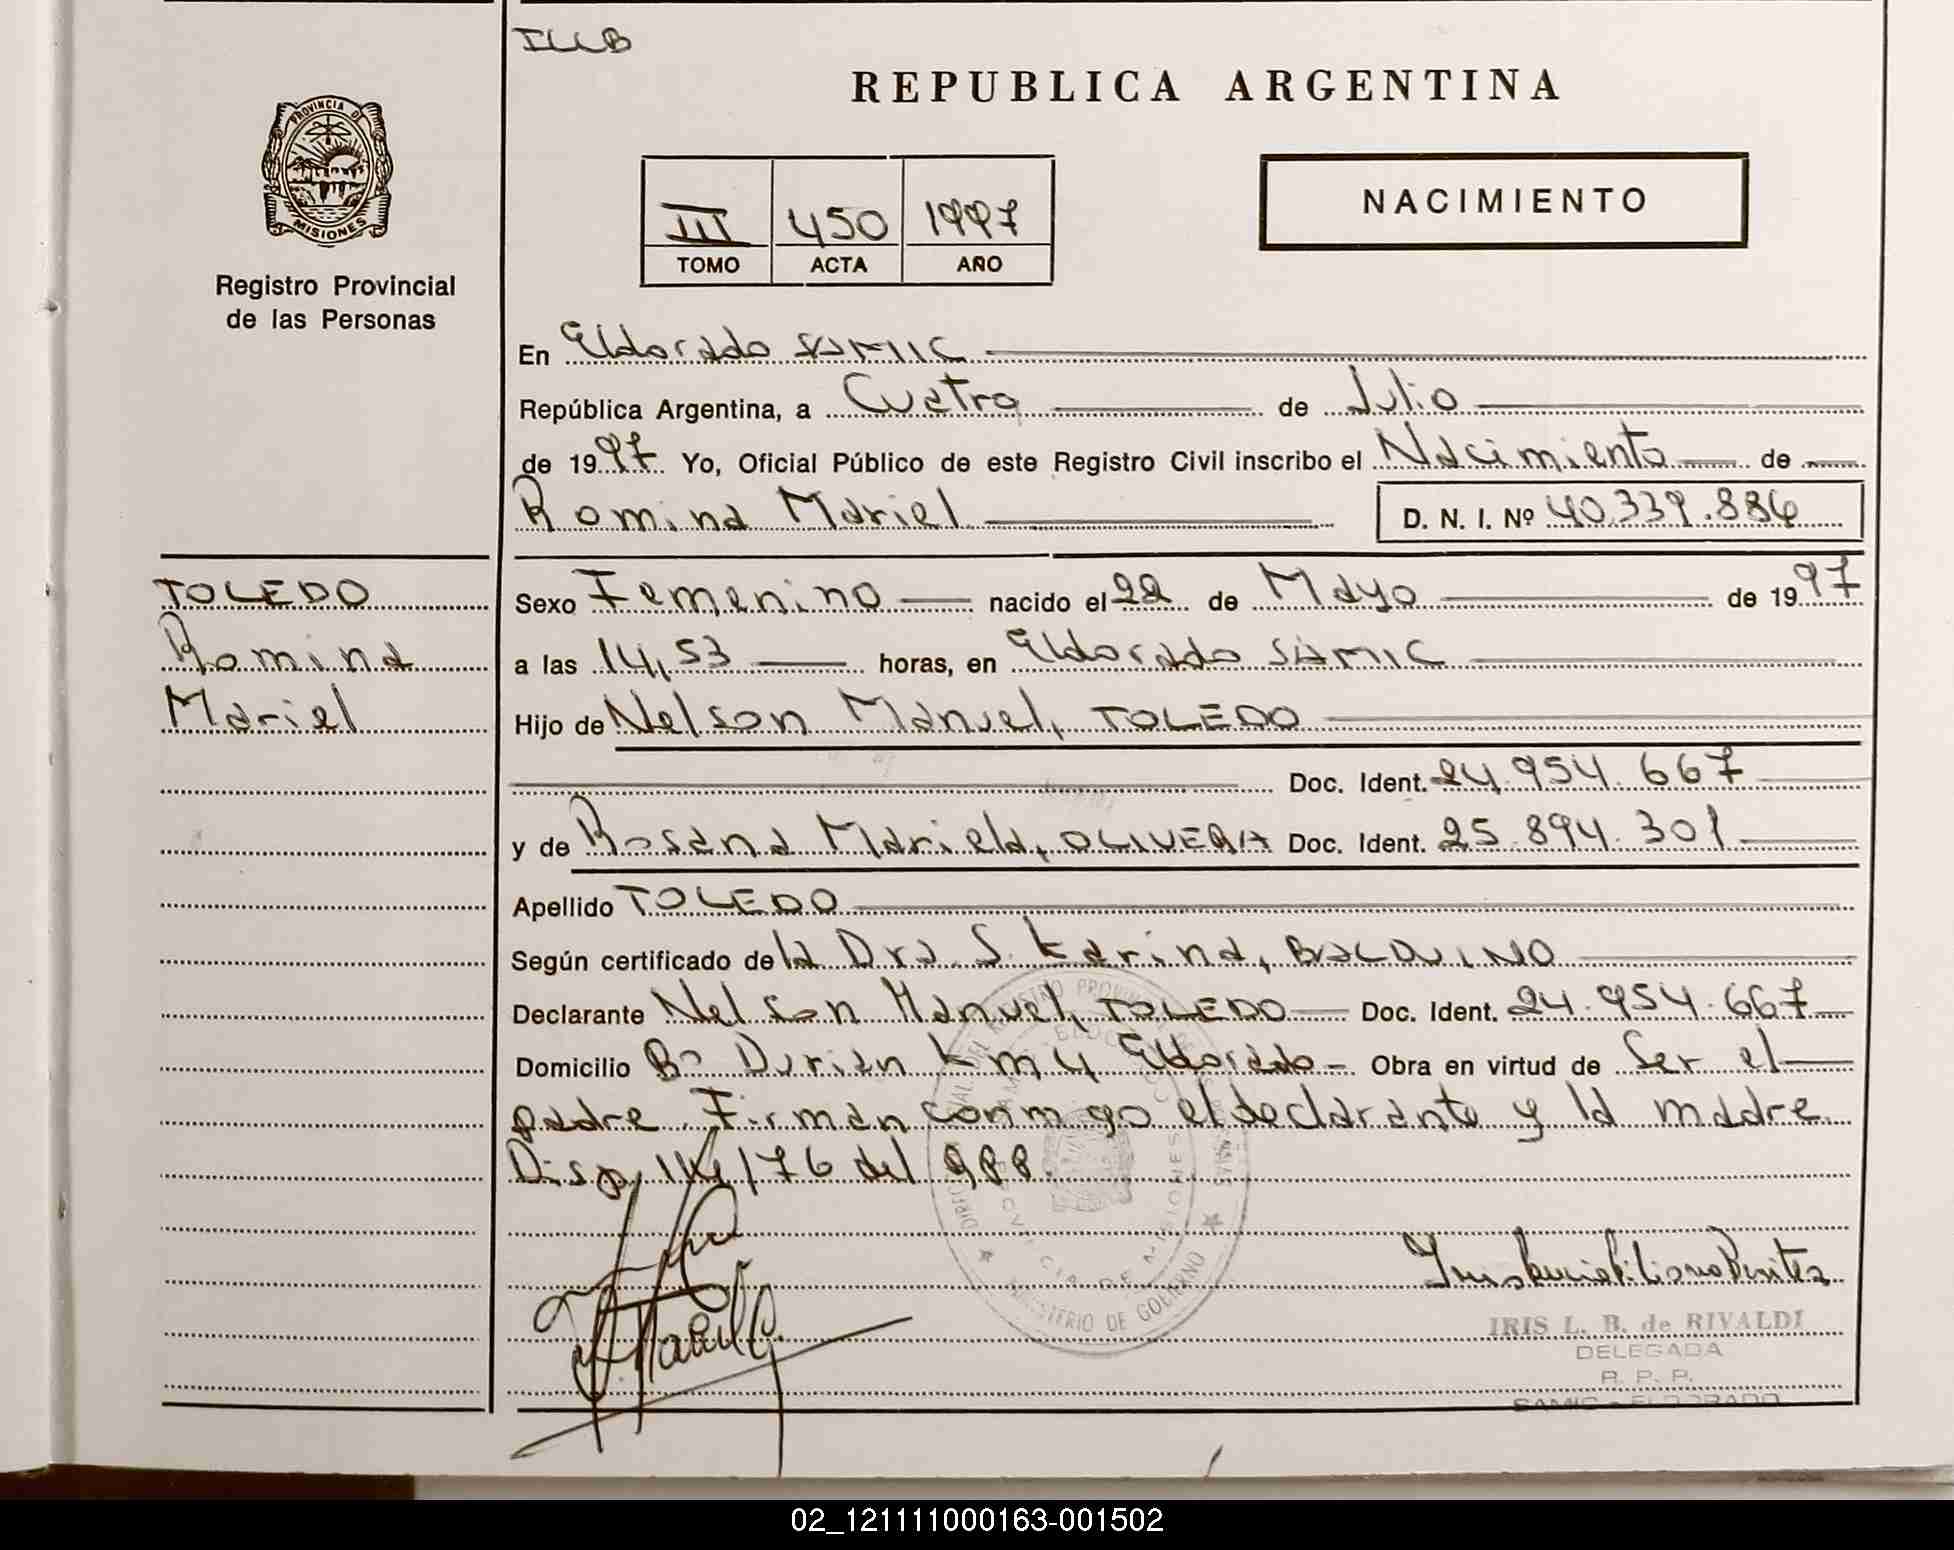 ILLB
REPUBLICA ARGENTINA
PROVINCIA DE
MISIONES
Registro Provincial
de las Personas
III 450 1997
TOMO ACTA AÑO
NACIMIENTO
En Eldorado SAMIC
República Argentina, a Cuatro de Julio
de 1997 Yo, Oficial Público de este Registro Civil inscribo el Nacimiento de
Romina Mariel D. N. I. Nº 40.339.886
TOLEDO
Romina
Mariel
Sexo Femenino nacido el 22 de Mayo de 1997
a las 14,53 horas, en Eldorado SAMIC
Hijo de Nelson Manuel, TOLEDO
Doc. Ident. 24.954.667
y de Rosana Mariela, OLIVERA Doc. Ident. 25.894.301
Apellido TOLEDO
Según certificado de la Dra. S. Karina, BALDUINO
Declarante Nelson Manuel, TOLEDO Doc. Ident. 24.954.667
Domicilio Bº Durian Km 4 Eldorado Obra en virtud de Ser el
padre. Firman conmigo el declarante y la madre
Disp. 114/76 del 988.
MINISTERIO DE GOBIERNO
PROVINCIA DE MISIONES
IRIS L. B. de RIVALDI
DELEGADA
R. P. P.
SAMIC - ELDORADO
02_121111000163-001502